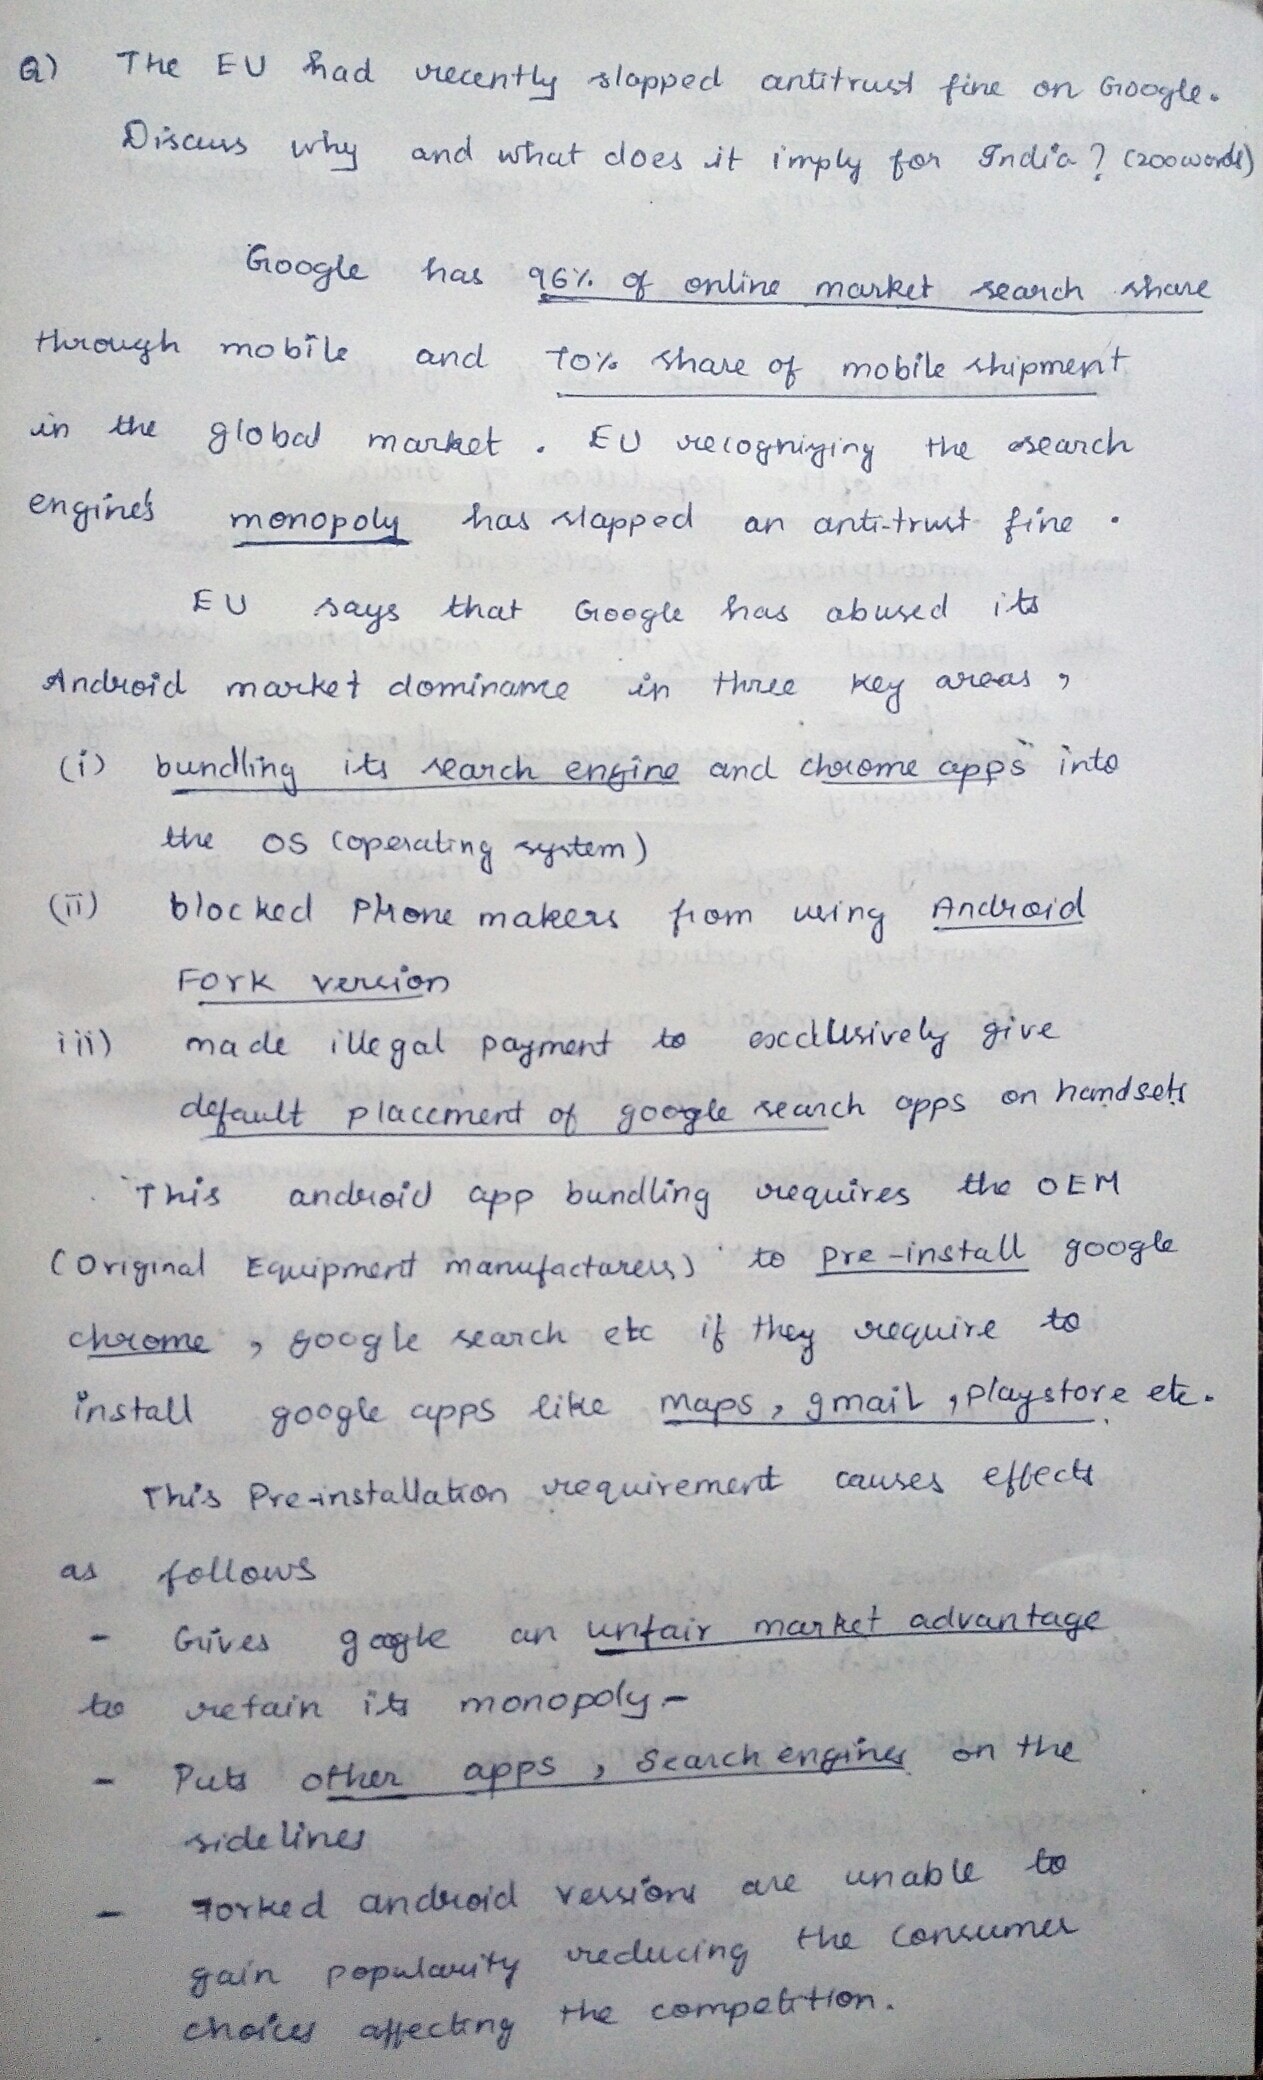 Q) The EU had recently slapped antitrust fine on Google.
Discuss why and what does it imply for India? (200words)
Google has 96% of online market search share
through mobile and 70% share of mobile shipment
in the global market. EU recognizing the search
engine's monopoly has slapped an anti-trust fine.
EU says that Google has abused its
Android market dominance in three key areas,
(i) bundling its search engine and chrome apps into
the OS (operating system)
(ii) blocked Phone makers from using Android
Fork version
iii) made illegal payment to exclusively give
default placement of google search apps on handsets
This android app bundling requires the OEM
(Original Equipment manufacturers) to pre-install google
chrome, google search etc if they require to
install google apps like maps, gmail, playstore etc.
This Pre-installation requirement causes effects
as follows
- Gives google an unfair market advantage
to retain its monopoly-
- Puts other apps, Search engines on the
sidelines
- Forked android versions are unable to
gain popularity reducing the consumer
choices affecting the competition.